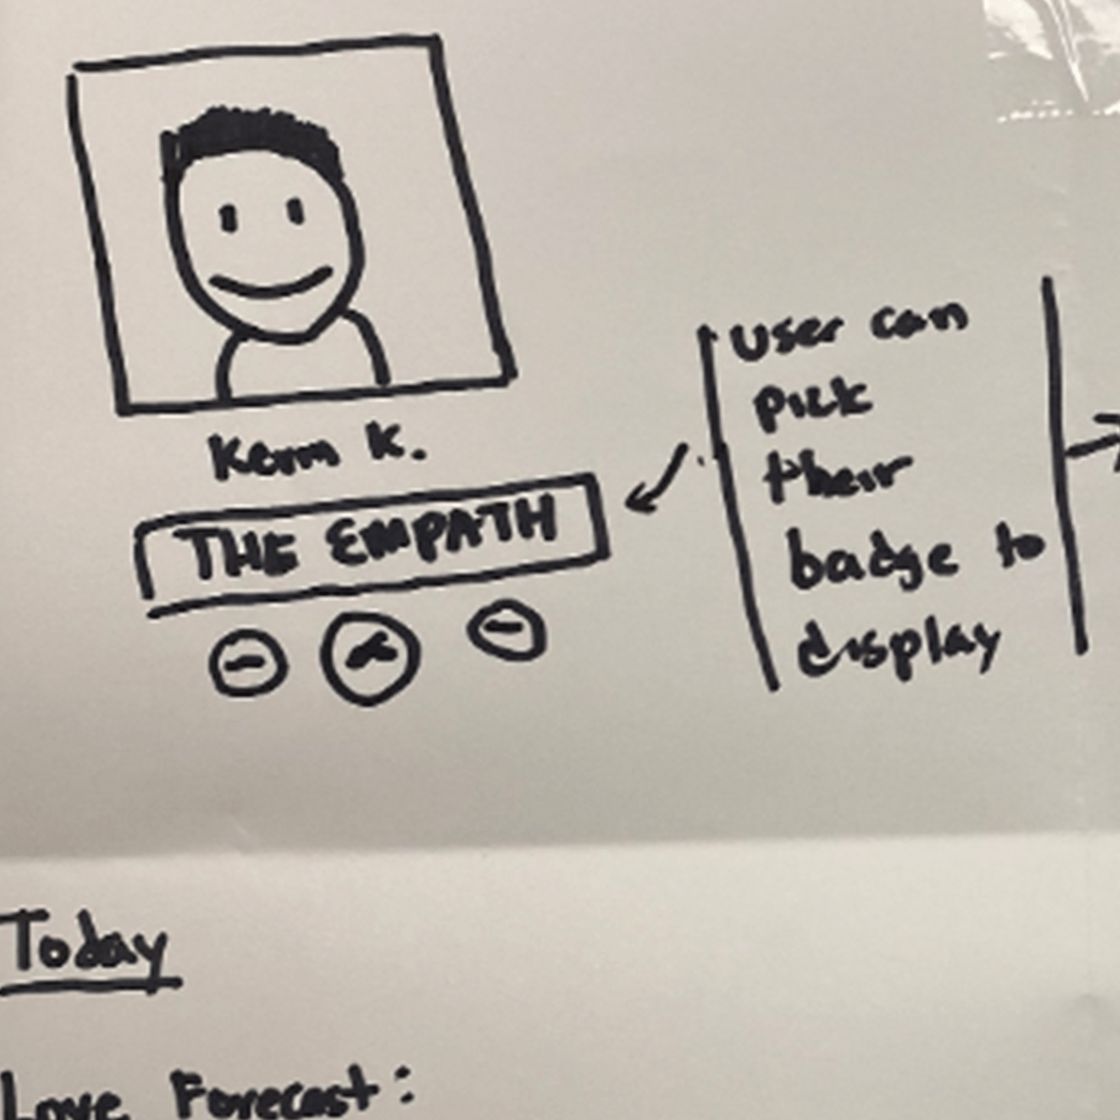 Kerm K.
THE EMPATH
user can
pick
their
badge to
display
Today
Love Forecast: